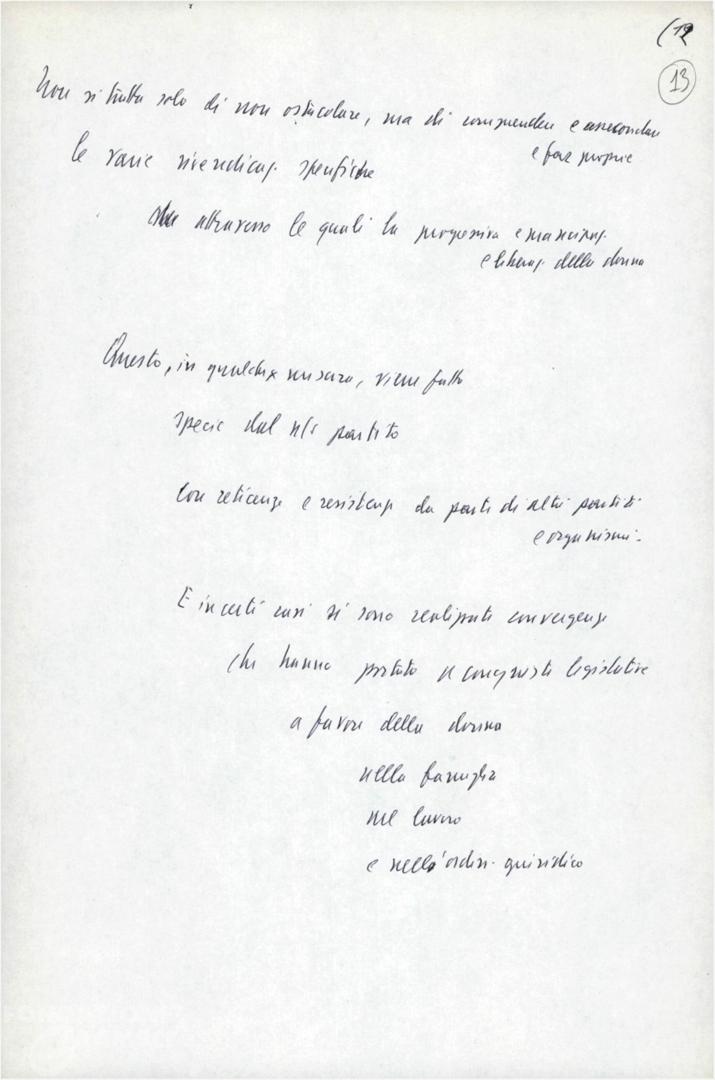 (12
13
Non si tratta solo di non ostacolare, ma di comprendere e assecondare
e fare proprie
le varie rivendicaz. specifiche
attraverso le quali la progressiva emancipaz.
e liberaz. della donna
Questo, in qualche misura, viene fatto
specie dal n/s partito
con reticenze e resistenze da parte di altri partiti
e organismi.
E in certi casi si sono realizzate convergenze
che hanno portato a conquiste legislative
a favore della donna
nella famiglia
nel lavoro
e nell'ordin. giuridico